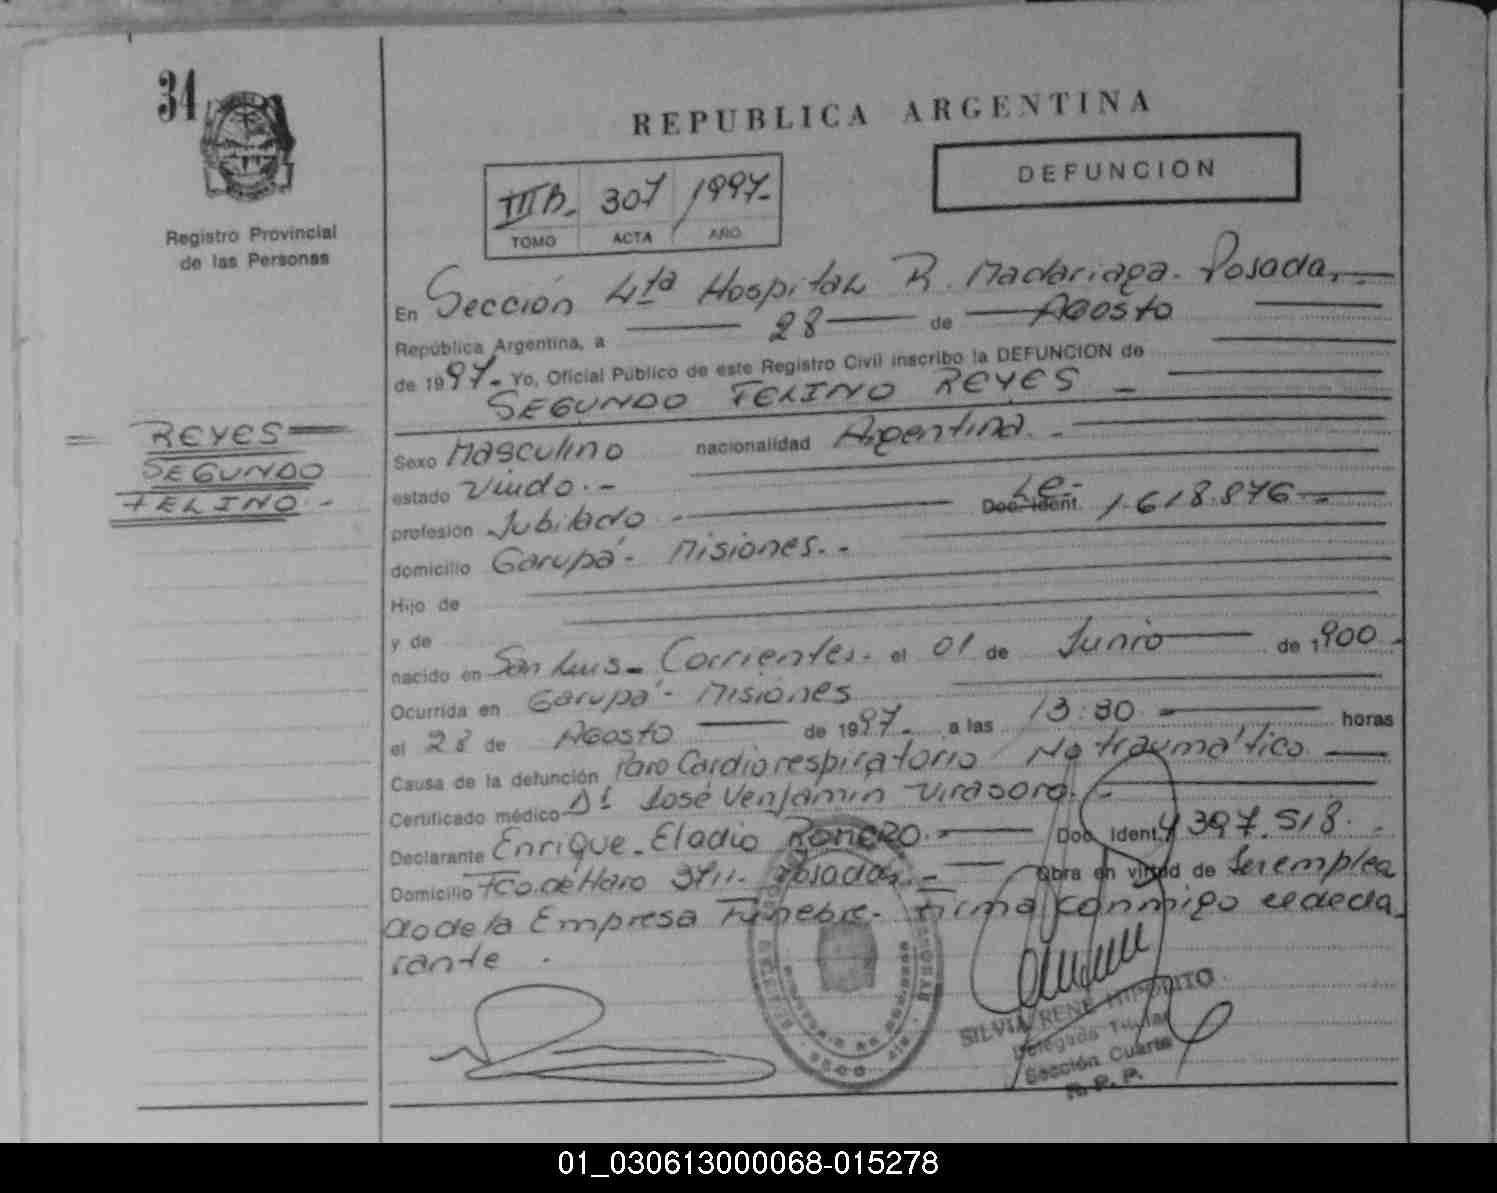 34
Registro Provincial
de las Personas
REPUBLICA ARGENTINA
DEFUNCION
III B. 307 1997.-
TOMO ACTA AÑO
En Sección 4ta Hospital R. Madariaga. Posadas,
República Argentina, a 28 de Agosto
de 1997.- Yo, Oficial Público de este Registro Civil inscribo la DEFUNCION de
SEGUNDO FELINO REYES -
= REYES =
SEGUNDO
FELINO.-
Sexo Masculino nacionalidad Argentina.-
estado Viudo.-
profesión Jubilado.- Doc. Ident. L.E.- 1.618.876.-
domicilio Garupá- Misiones.-
Hijo de
y de
nacido en San Luis- Corrientes. el 01 de Junio de 1900.-
Ocurrida en Garupá- Misiones
el 28 de Agosto de 1997. a las 13:30 horas
Causa de la defunción Paro Cardiorespiratorio No traumático
Certificado médico Dr. José Venjamin Virasoro.-
Declarante Enrique Eladio Romero.- Doc. Ident. 4397.518.-
Domicilio Fco. de Haro 3711- Posadas.- Obra en virtud de Ser emplea
do de la Empresa Fúnebre. Firma conmigo el decla
rante.
SILVIA RENE HIPOLITO
Delegada Titular
Sección Cuarta
R. P. P.
01_030613000068-015278